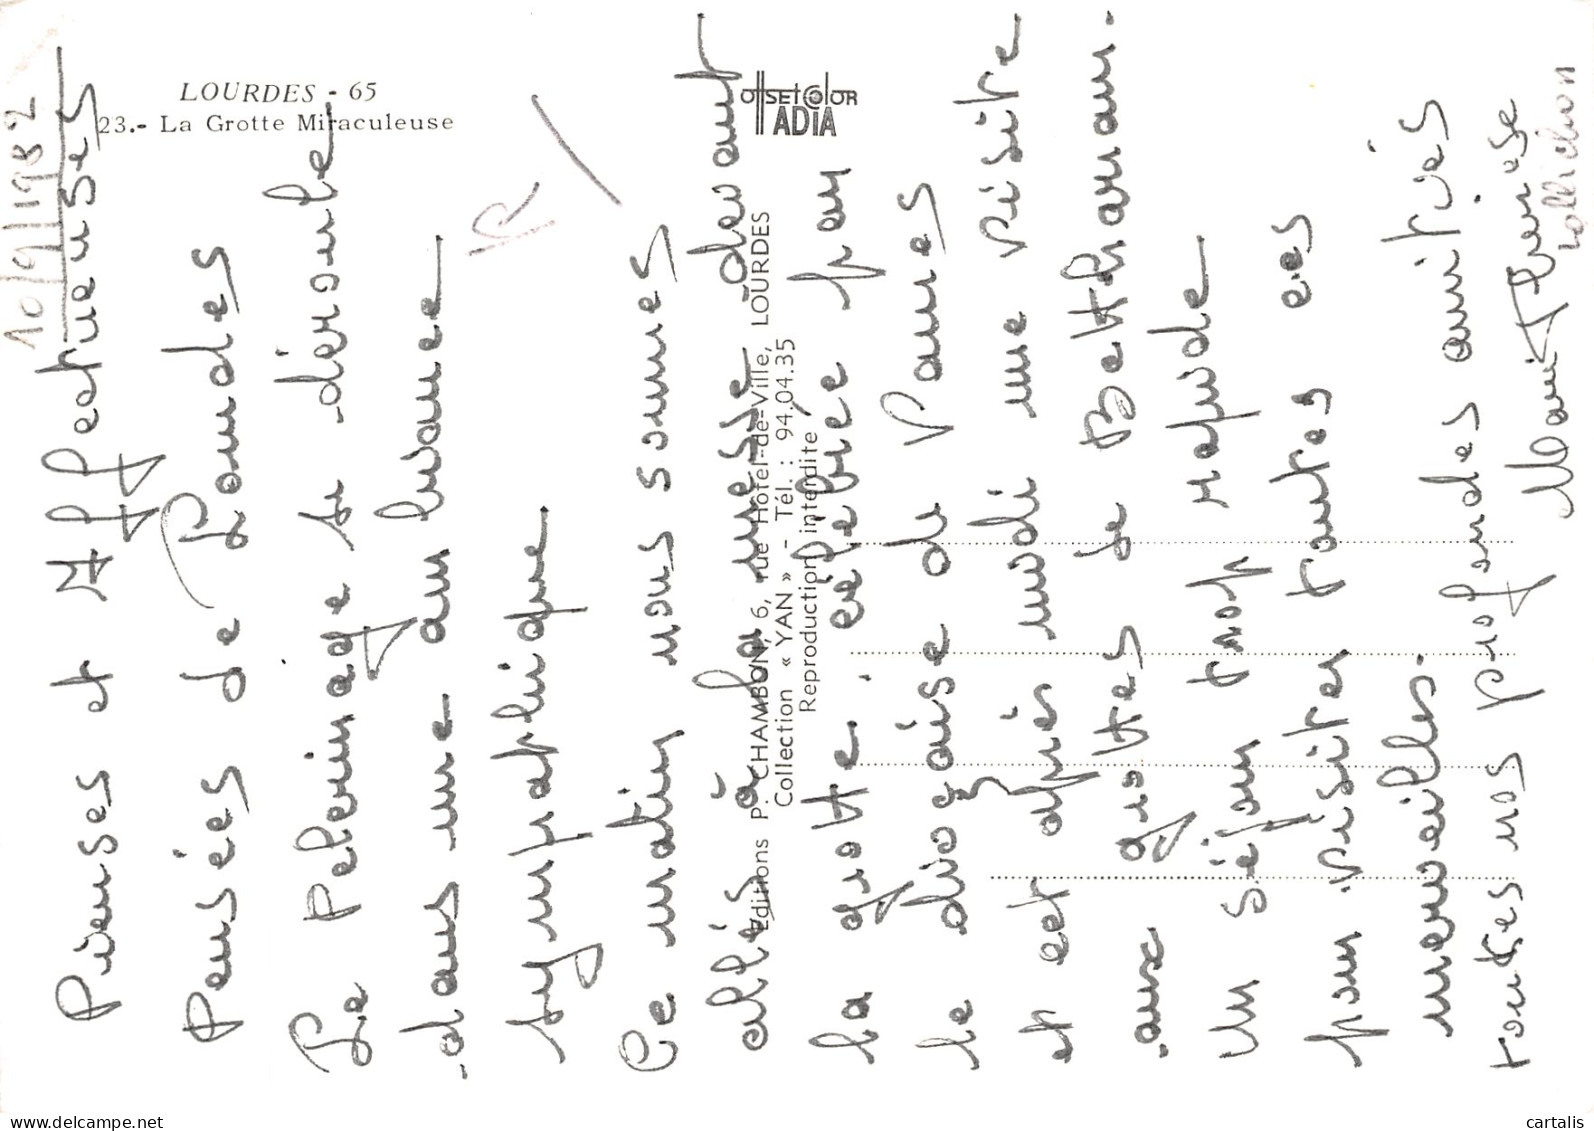 LOURDES - 65
23.- La Grotte Miraculeuse
OffsetColor
ADIA
Editions P. CHAMBON, 6, rue Hôtel-de-Ville, LOURDES
Collection « YAN » - Tél. : 94.04.35
Reproduction interdite
10/9/1982
Pieuses et Affectueuses
Pensées de Lourdes
Le Pelerinage se déroule
dans une ambiance
sympathique
Ce matin nous sommes
allés à la messe devant
la grotte. célébré par
le diocèse de Vannes
et cet après midi une visite
aux grottes de Bettharam.
Un séjour trop rapide
pour visiter toutes ces
merveilles.
toutes nos profondes amitiés
Marie Thérèse
R
delcampe.net
cartalis